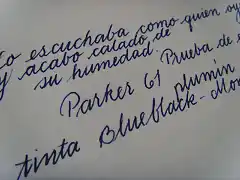 lo escuchaba como quien oye
y acabó calado de
su humedad.
Parker 61 Prueba de
plumín
tinta Blueblack-Mon